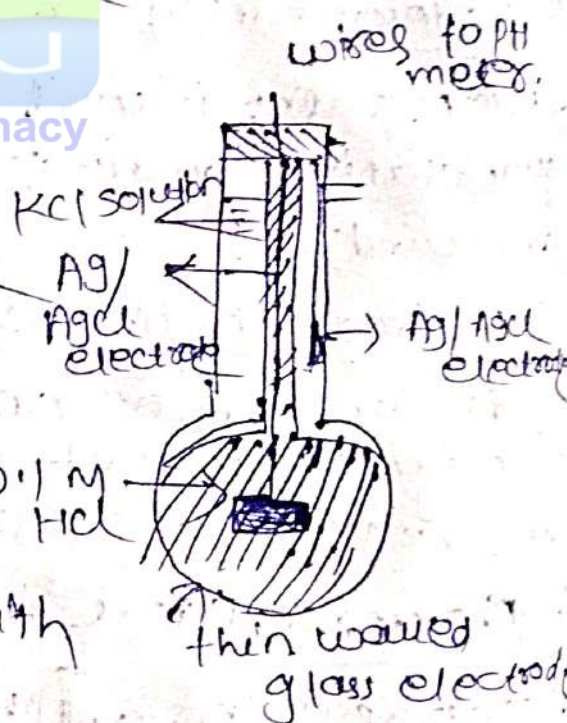 macy
wires to pH
meter.
KCl solution
Ag/
AgCl
electrode
Ag/AgCl
electrode
0.1 M
HCl
thin walled
glass electrode